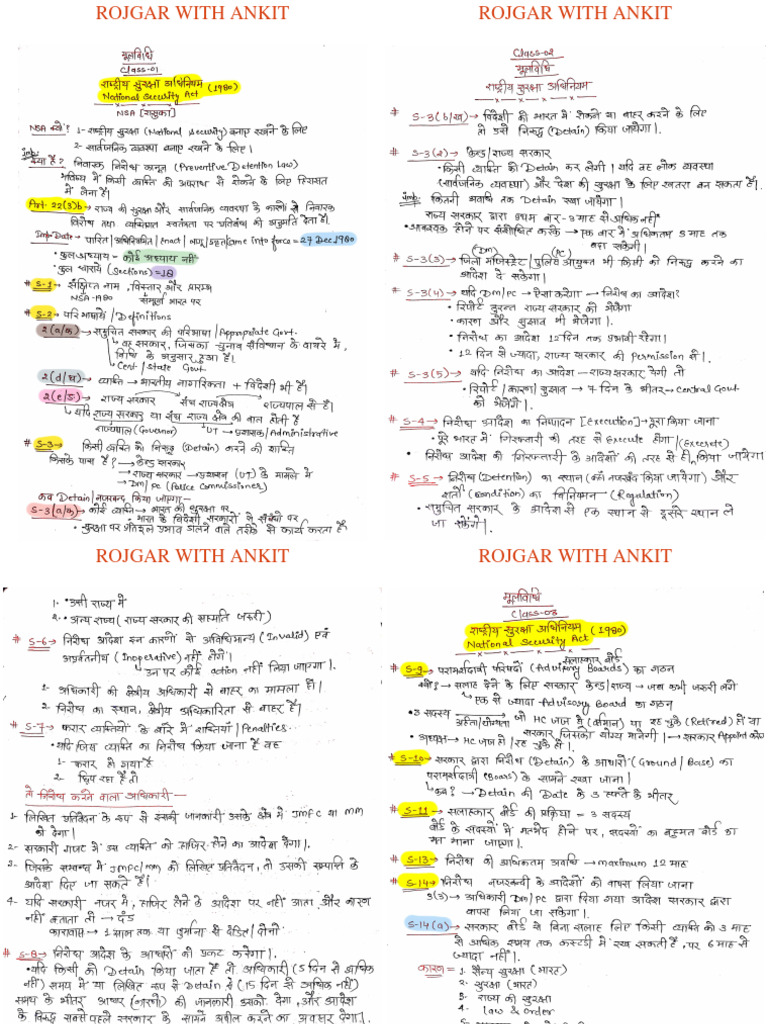 ROJGAR WITH ANKIT
मूलविधि
Class-01
राष्ट्रीय सुरक्षा अधिनियम (1980)
National Security Act
NSA [रासुका]
NSA क्यों? 1- राष्ट्रीय सुरक्षा (National Security) बनाए रखने के लिए
2- सार्वजनिक व्यवस्था बनाए रखने के लिए।
Imp:
क्या है? निवारक निरोध कानून (Preventive Detention Law)
भविष्य में किसी व्यक्ति को अपराध से रोकने के लिए हिरासत
में लेना है।
Art. 22(3)b → राज्य की सुरक्षा और सार्वजनिक व्यवस्था के कारणों से निवारक
निरोध तथा व्यक्तिगत स्वतंत्रता पर प्रतिबंध की अनुमति देता है।
Imp.Date → पारित/अधिनियमित/Enact/लागू/came into force = 27 Dec 1980
• कुल अध्याय - कोई अध्याय नहीं
• कुल धाराये (Sections) = 18
# S-1 → संक्षिप्त नाम, विस्तार और प्रारम्भ
NSA-1980 सम्पूर्ण भारत पर
# S-2 → परिभाषाएं / Definitions
2(a/क) → समुचित सरकार की परिभाषा / Appropriate Govt.
↳ वह सरकार, जिसका चुनाव संविधान के दायरे में,
विधि के अनुसार हुआ है।
↳ Cent / State Govt
2(d/घ) → व्यक्ति → भारतीय नागरिकता + विदेशी भी है।
2(e/ड) → राज्य सरकार संघ राज्यक्षेत्र राज्यपाल से है।
↳ यदि राज्य सरकार या संघ राज्य क्षेत्र की बात होती है
राज्यपाल (Governor) UT → प्रशासक/Administrative
# S-3 → किसी व्यक्ति को निरुद्ध (Detain) करने की शक्ति
किसके पास है? → केन्द्र सरकार
→ राज्य सरकार → प्रशासक (UT) के मामले में
→ Dm/Pc (Police Commissioner)
कब Detain/नजरबन्द किया जाएगा-
S-3(a/क) → कोई व्यक्ति → भारत की सुरक्षा पर
• भारत के विदेशी सरकारों से संबंधों पर
• सुरक्षा पर प्रतिकूल प्रभाव डालने वाले तरीके से कार्य करता है।
ROJGAR WITH ANKIT
Class-02
मूलविधि
राष्ट्रीय सुरक्षा अधिनियम
# S-3(b/ख) → विदेशी को भारत में रोकने या बाहर करने के लिए
तो उसे निरुद्ध (Detain) किया जायेगा।
# S-3(2) → केन्द्र/राज्य सरकार
• किसी व्यक्ति को Detain कर लेगी। यदि वह लोक व्यवस्था
(सार्वजनिक व्यवस्था) और देश की सुरक्षा के लिए खतरा बन सकता है।
Imp: कितनी अवधि तक Detain रखा जायेगा।
राज्य सरकार द्वारा प्रथम बार - 3 माह से अधिक नहीं"
• आवश्यक होने पर संशोधित करके → एक बार में अधिकतम 3 माह तक
बढ़ा सकेगी।
(Dm) (Pc)
# S-3(3) → जिला मजिस्ट्रेट / पुलिस आयुक्त भी किसी को निरुद्ध करने का
आदेश दे सकेगा।
# S-3(4) → यदि DM/PC → ऐसा करेगा → निरोध का आदेश?
• रिपोर्ट तुरन्त राज्य सरकार को भेजेगा
• कारण और सुझाव भी भेजेगा।
• निरोध का आदेश 12 दिन तक प्रभावी रहेगा।
• 12 दिन से ज्यादा, राज्य सरकार की Permission से।
# S-3(5) → यदि निरोध का आदेश - राज्य सरकार देगी तो
• रिपोर्ट/कारण/सुझाव → 7 दिन के भीतर → Central Govt
को भेजेगी।
# S-4 → निरोध आदेश का निष्पादन [Execution] → पूरा किया जाना
• पूरे भारत में गिरफ्तारी की तरह से Execute होगा।
• निरोध आदेश को गिरफ्तारी के आदेशों की तरह से ही किया जायेगा
# S-5 → निरोध (Detention) का स्थान (कहाँ नजरबंद किया जायेगा) और
शर्तों (Condition) का विनियमन - (Regulation)
• समुचित सरकार के आदेश से एक स्थान से दूसरे स्थान ले
जा सकेंगे।
ROJGAR WITH ANKIT
1. • उसी राज्य में
2. • अन्य राज्य (राज्य सरकार की सहमति जरूरी)
# S-6 → निरोध आदेश इन कारणों से अविधिमान्य (Invalid) एवं
अप्रवर्तनीय (Inoperative) नहीं होंगे।
उन पर कोई action नहीं लिया जाएगा।
1. अधिकारी की क्षेत्रीय अधिकारिता से बाहर का मामला हो।
2. निरोध का स्थान, क्षेत्रीय अधिकारिता से बाहर है।
# S-7 → फरार व्यक्तियों के बारे में शक्तियाँ / Penalties-
• यदि जिस व्यक्ति का निरोध किया जाना है वह
1- फरार हो गया है
2- छिप रहा है तो
तो निरोध करने वाला अधिकारी-
1- लिखित प्रतिवेदन के रूप से इसकी जानकारी उसके क्षेत्र में JMFC या MM
को देगा।
2- सरकारी गजट में उस व्यक्ति को हाजिर होने का आदेश देगा।
3- जिसके सम्बन्ध में JMFC/MM को लिखित प्रतिवेदन, तो उसकी सम्पत्ति के
आदेश दिए जा सकते हैं।
4- यदि सरकारी गजट में, हाजिर होने के आदेश पर नहीं आता और कारण
नहीं बताता तो → दंड
कारावास → 1 साल तक या जुर्माना से दंडित/दोनों
# S-8 → निरोध आदेश के आधारों को प्रकट करेगा।
• यदि किसी को Detain किया जाता है तो अधिकारी (5 दिन से अधिक
नहीं) समय में या लिखित रूप से Detain से (15 दिन से अधिक नहीं)
समय के भीतर आधार (कारणों) की जानकारी उसको देगा, और आदेश
के विरुद्ध सबसे पहले सरकार के सामने अपील करने का अवसर देगा।
ROJGAR WITH ANKIT
मूलविधि
Class-03
राष्ट्रीय सुरक्षा अधिनियम (1980)
National Security Act
सलाहकार बोर्ड
# S-9 → परामर्शदात्री परिषदों (Advisory Boards) का गठन
क्यों? → सलाह देने के लिए सरकार केन्द्र/राज्य → जब कभी जरूरी लगे
↳ एक से ज्यादा Advisory Board का गठन
• 3 सदस्य अर्हता/योग्यता जो HC जज हैं (वर्तमान) या रह चुके (Retired) हों या
सरकार जिसको योग्य मानेगी।
• अध्यक्ष → HC जज हो/रह चुके हो। → सरकार Appoint करेगी
# S-10 → सरकार द्वारा निरोध (Detain) के आधारों (Ground / Base) का
परामर्शदात्री (Board) के सामने रखा जाना।
↳ कब? → Detain की Date के 3 हफ्ते के भीतर
# S-11 → सलाहकार बोर्ड की प्रक्रिया = 3 सदस्य
बोर्ड के सदस्यों में मतभेद होने पर, सदस्यों का बहुमत बोर्ड का
मत माना जाएगा।
# S-13 → निरोध की अधिकतम अवधि → maximum 12 माह
# S-14 → निरोध नजरबन्दी के आदेशों को वापस लिया जाना
3(3) → अधिकारी DM/PC द्वारा दिया गया आदेश सरकार द्वारा
वापस लिया जा सकेगा।
S-14(a) → सरकार बोर्ड से बिना सलाह लिए किसी व्यक्ति को 3 माह
से अधिक समय तक कस्टडी में रख सकती है, पर 6 माह से
ज्यादा नहीं।
कारण = 1. सैन्य सुरक्षा (भारत)
2. सुरक्षा (भारत)
3. राज्य की सुरक्षा
4. Law & Order